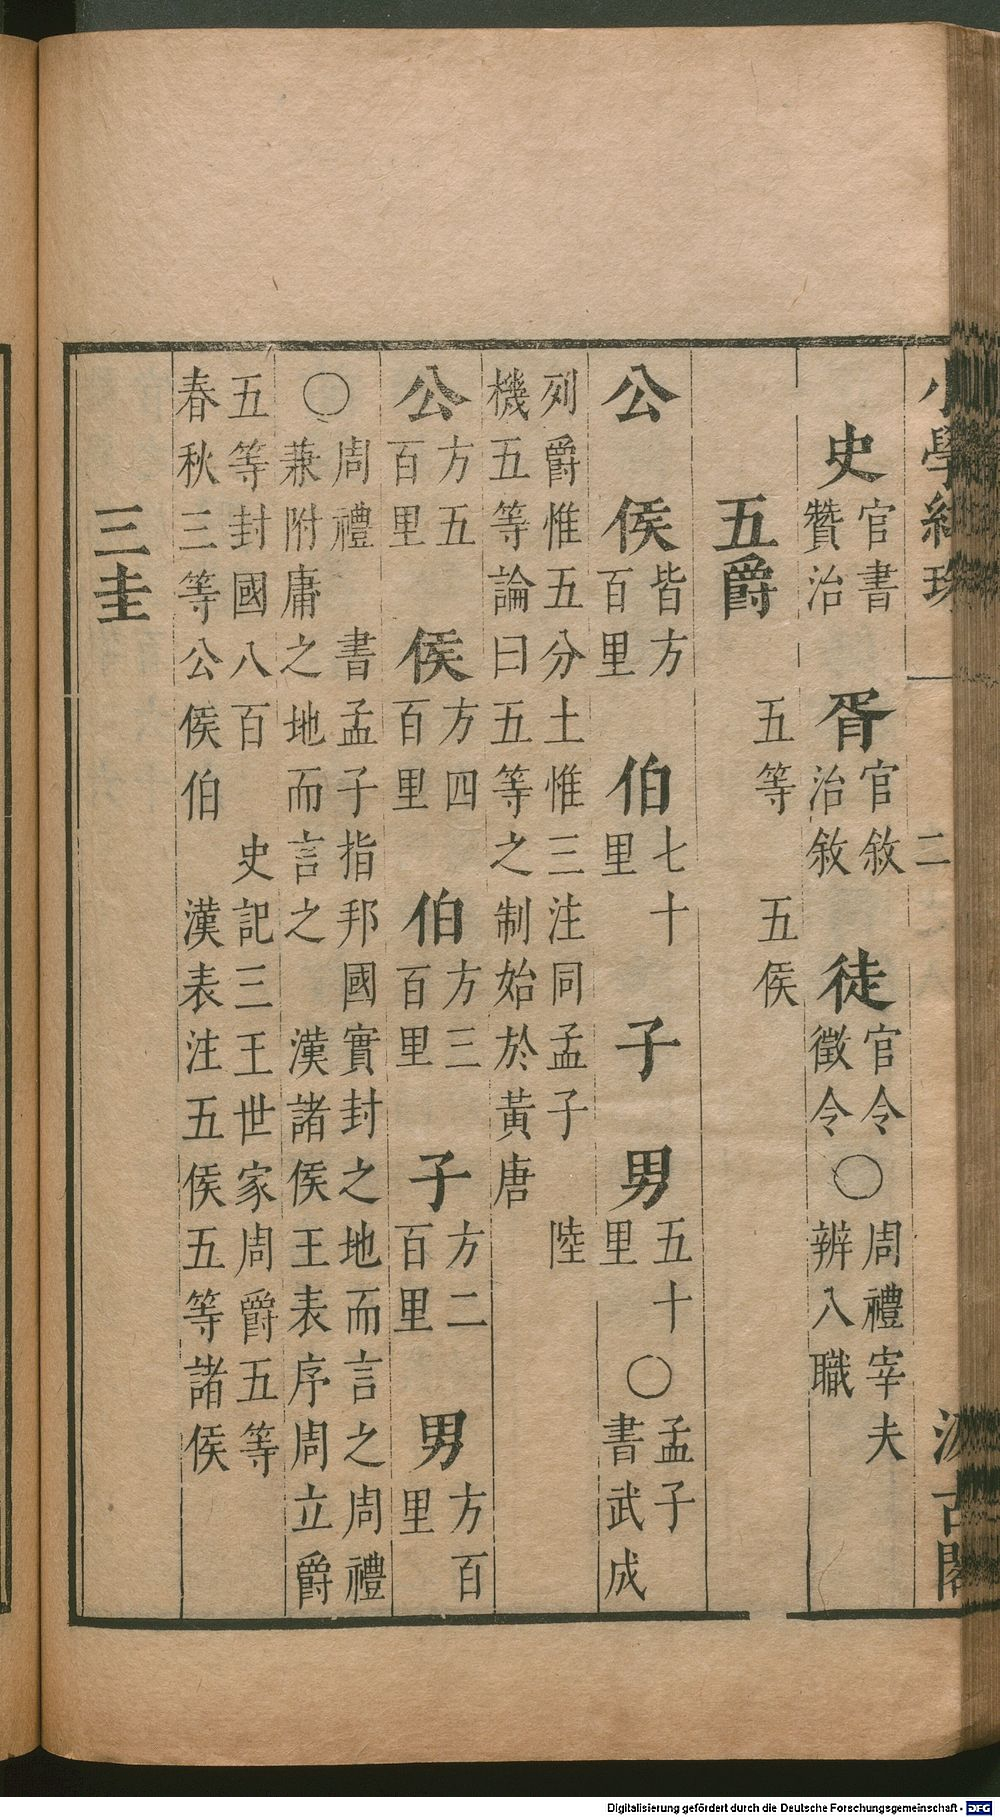 小學紺珠 二 汲古閣
史官書贊治 胥官敘治敘 徒官令徵令○周禮宰夫辨八職
五爵 五等 五侯
公 侯皆方百里 伯七十里 子 男五十里○孟子 書武成
列爵惟五分土惟三注同孟子 陸
機五等論曰五等之制始於黃唐
公方五百里 侯方四百里 伯方三百里 子方二百里 男方百里
○周禮 書孟子指邦國實封之地而言之周禮
兼附庸之地而言之 漢諸侯王表序周立爵
五等封國八百 史記三王世家周爵五等
春秋三等公侯伯 漢表注五侯五等諸侯
三圭
Digitalisierung gefördert durch die Deutsche Forschungsgemeinschaft - DFG